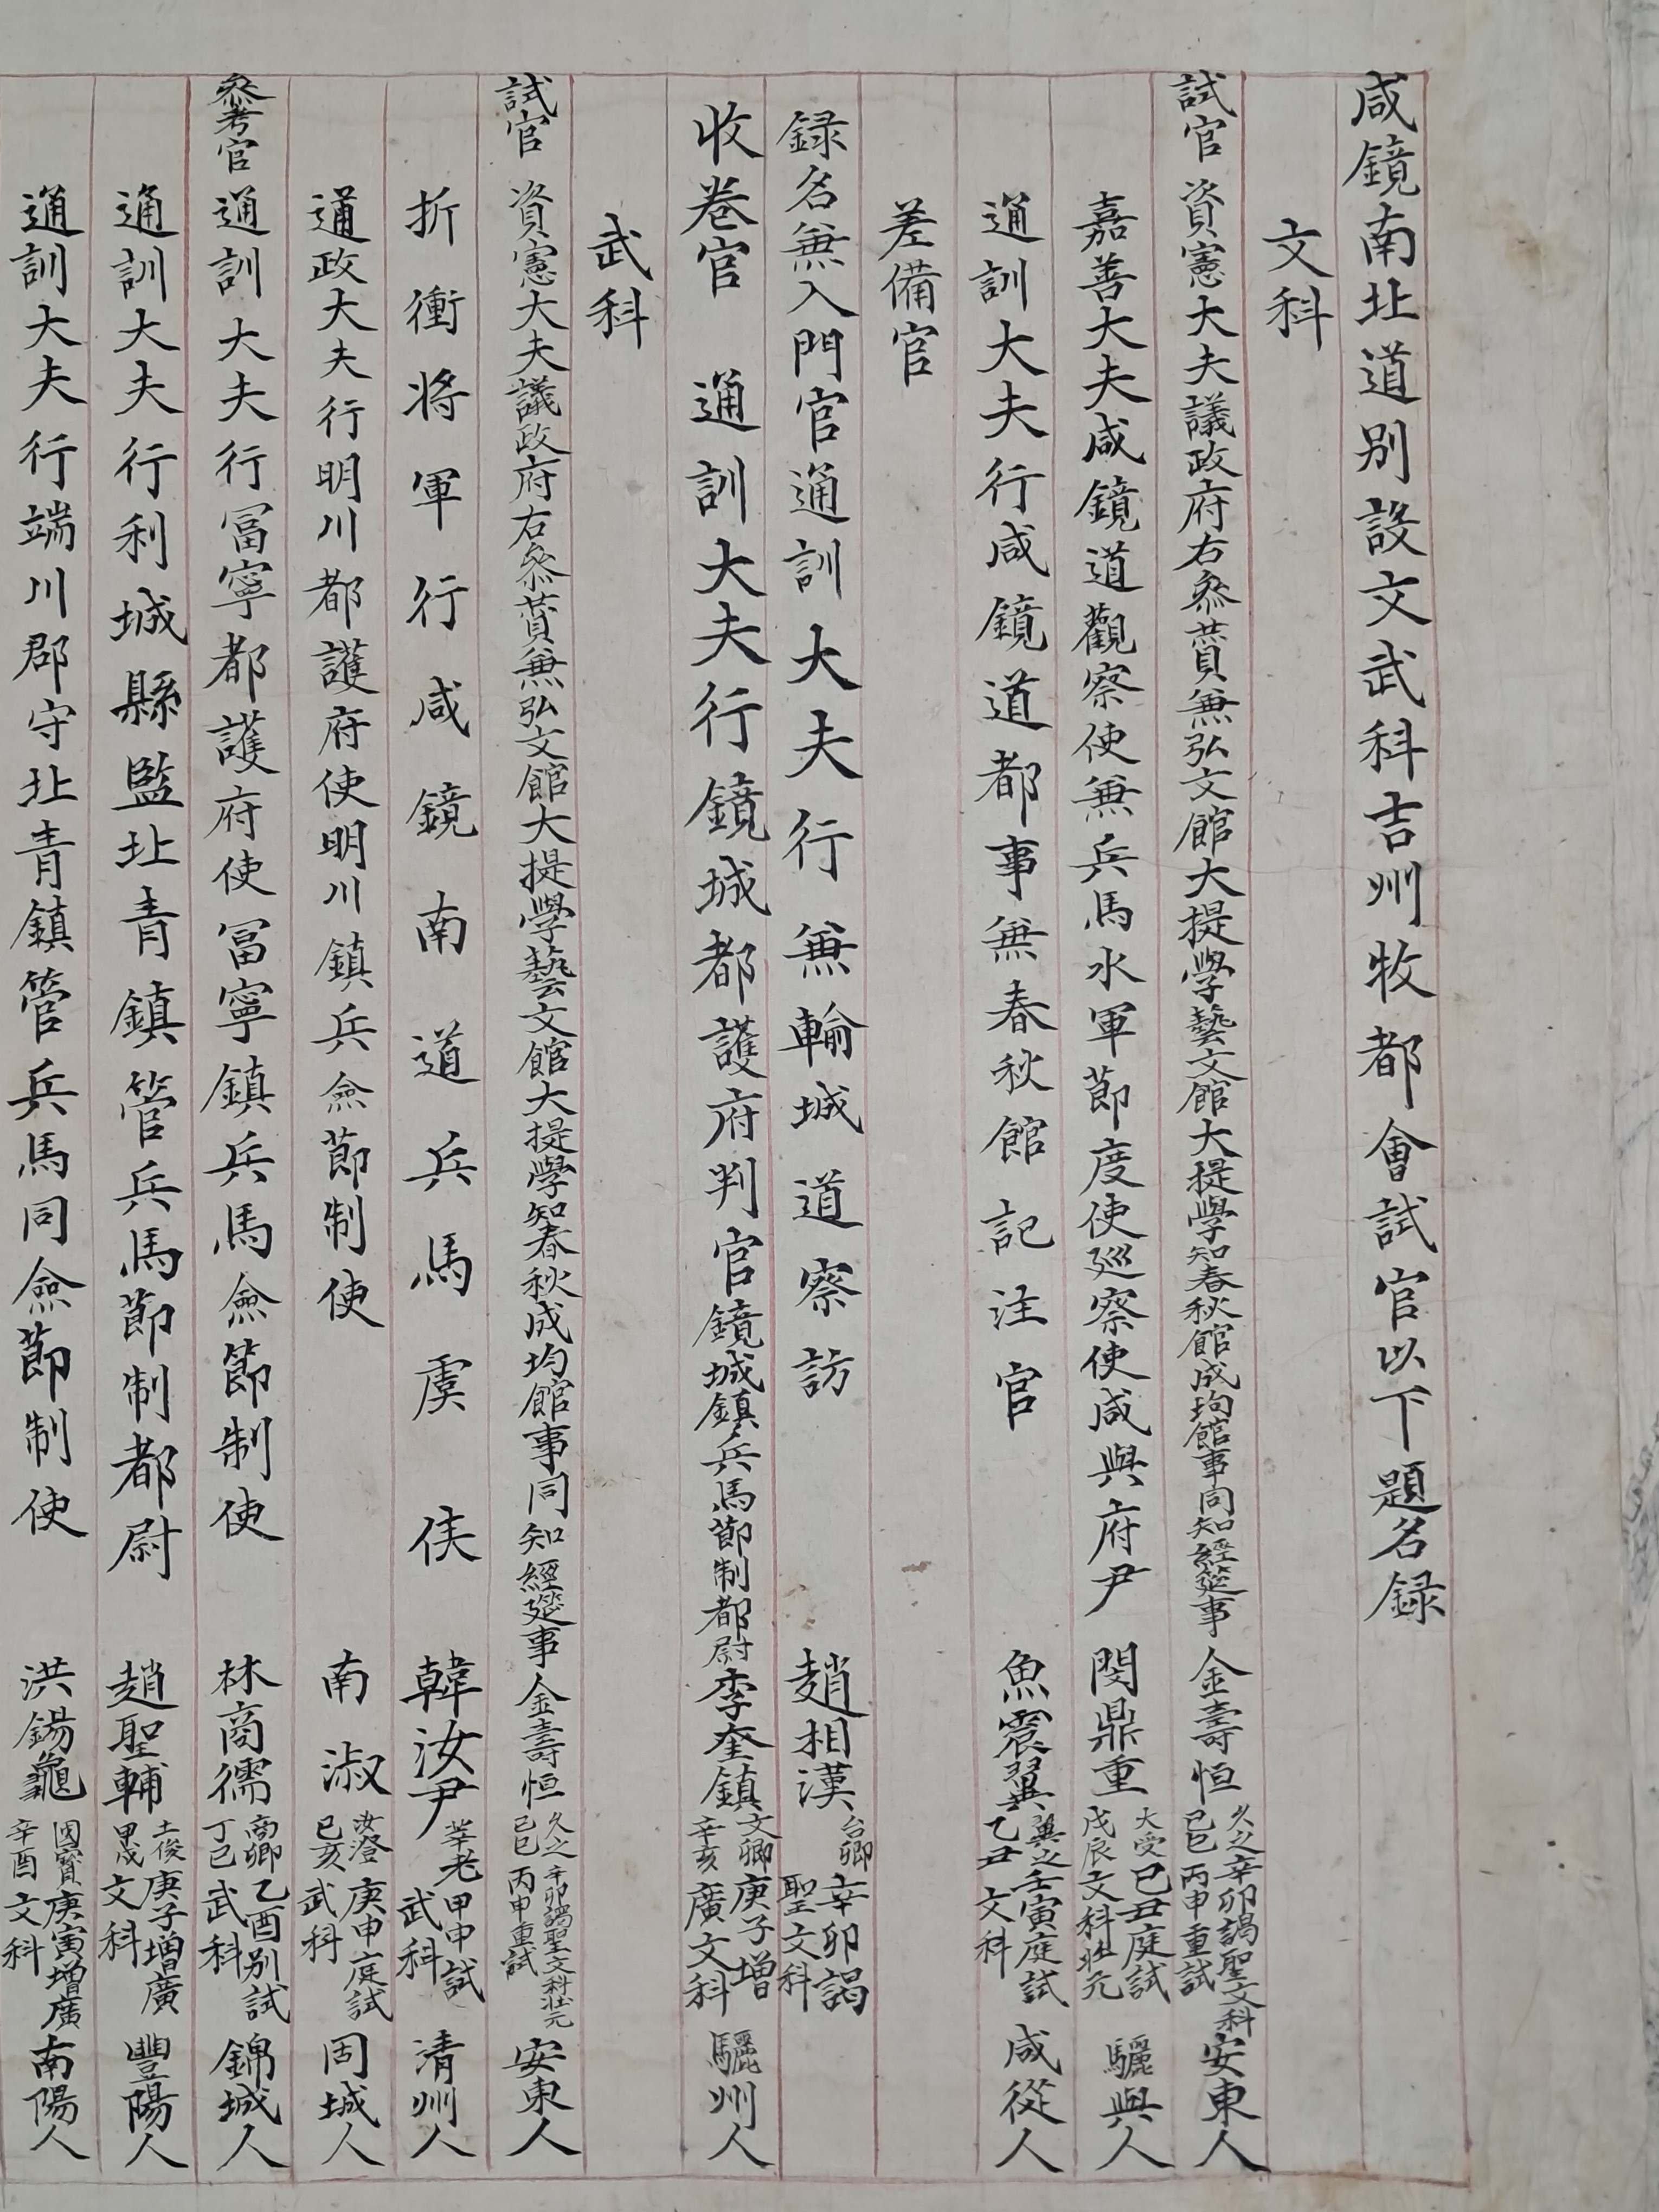 咸鏡南北道別設文武科吉州牧都會試官以下題名録
文科
試官 資憲大夫議政府右叅賛兼弘文館大提學藝文館大提學知春秋館成均館事同知經筵事 金壽恒 久之 己巳 辛卯謁聖文科 丙申重試 安東人
嘉善大夫咸鏡道觀察使兼兵馬水軍節度使巡察使咸興府尹 閔鼎重 大受 戊辰 己丑庭試文科壯元 驪興人
通訓大夫行咸鏡道都事兼春秋館記注官 魚震翼 翼之 乙丑 壬寅庭試文科 咸從人
差備官
録名兼入門官通訓大夫行兼輸城道察訪 趙相漢 台卿 辛卯謁聖文科
收卷官 通訓大夫行鏡城都護府判官鏡城鎮兵馬節制都尉 李奎鎮 文卿 辛亥 庚子增廣文科 驪州人
武科
試官 資憲大夫議政府右叅賛兼弘文館大提學藝文館大提學知春秋成均館事同知經筵事 金壽恒 久之 己巳 辛卯謁聖文科壯元 丙申重試 安東人
折衝将軍行咸鏡南道兵馬虞侯 韓汝尹 莘老 甲申試武科 清州人
通政大夫行明川都護府使明川鎮兵僉節制使 南淑 汝澄 己亥 庚申庭試武科 固城人
叅考官 通訓大夫行冨寧都護府使冨寧鎮兵馬僉節制使 林商儒 商卿 丁巳 乙酉別試武科 錦城人
通訓大夫行利城縣監北青鎮管兵馬節制都尉 趙聖輔 士俊 甲戌 庚子增廣文科 豐陽人
通訓大夫行端川郡守北青鎮管兵馬同僉節制使 洪錫龜 國寶 辛酉 庚寅增廣文科 南陽人